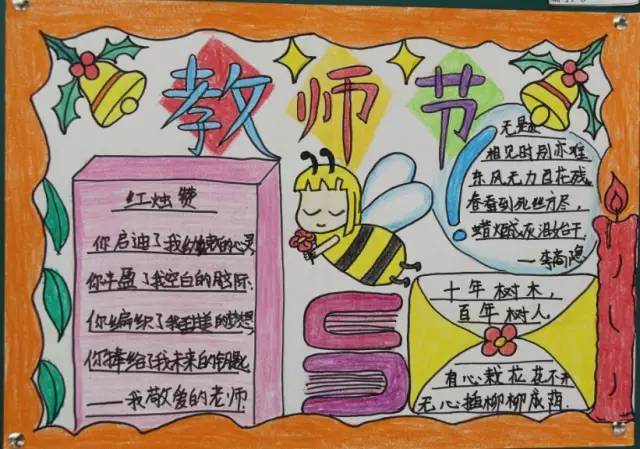 教师节
红烛赞
你启迪了我幼稚的心灵
你丰盈了我空白的脑际
你编织了我甜美的梦想
你捧给了我未来的钥匙
——我敬爱的老师
无题
相见时别亦难
东风无力百花残。
春看到死丝方尽,
蜡炬成灰泪始干。
—李商隐
十年树木,
百年树人
有心栽花花不开
无心插柳柳成荫.